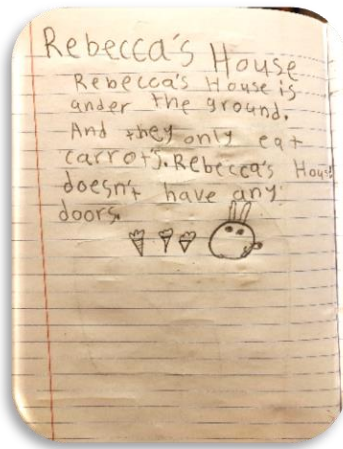 Rebecca's House
Rebecca's House is
under the ground.
And they only eat
carrots. Rebecca's Hous
doesn't have any
doors.